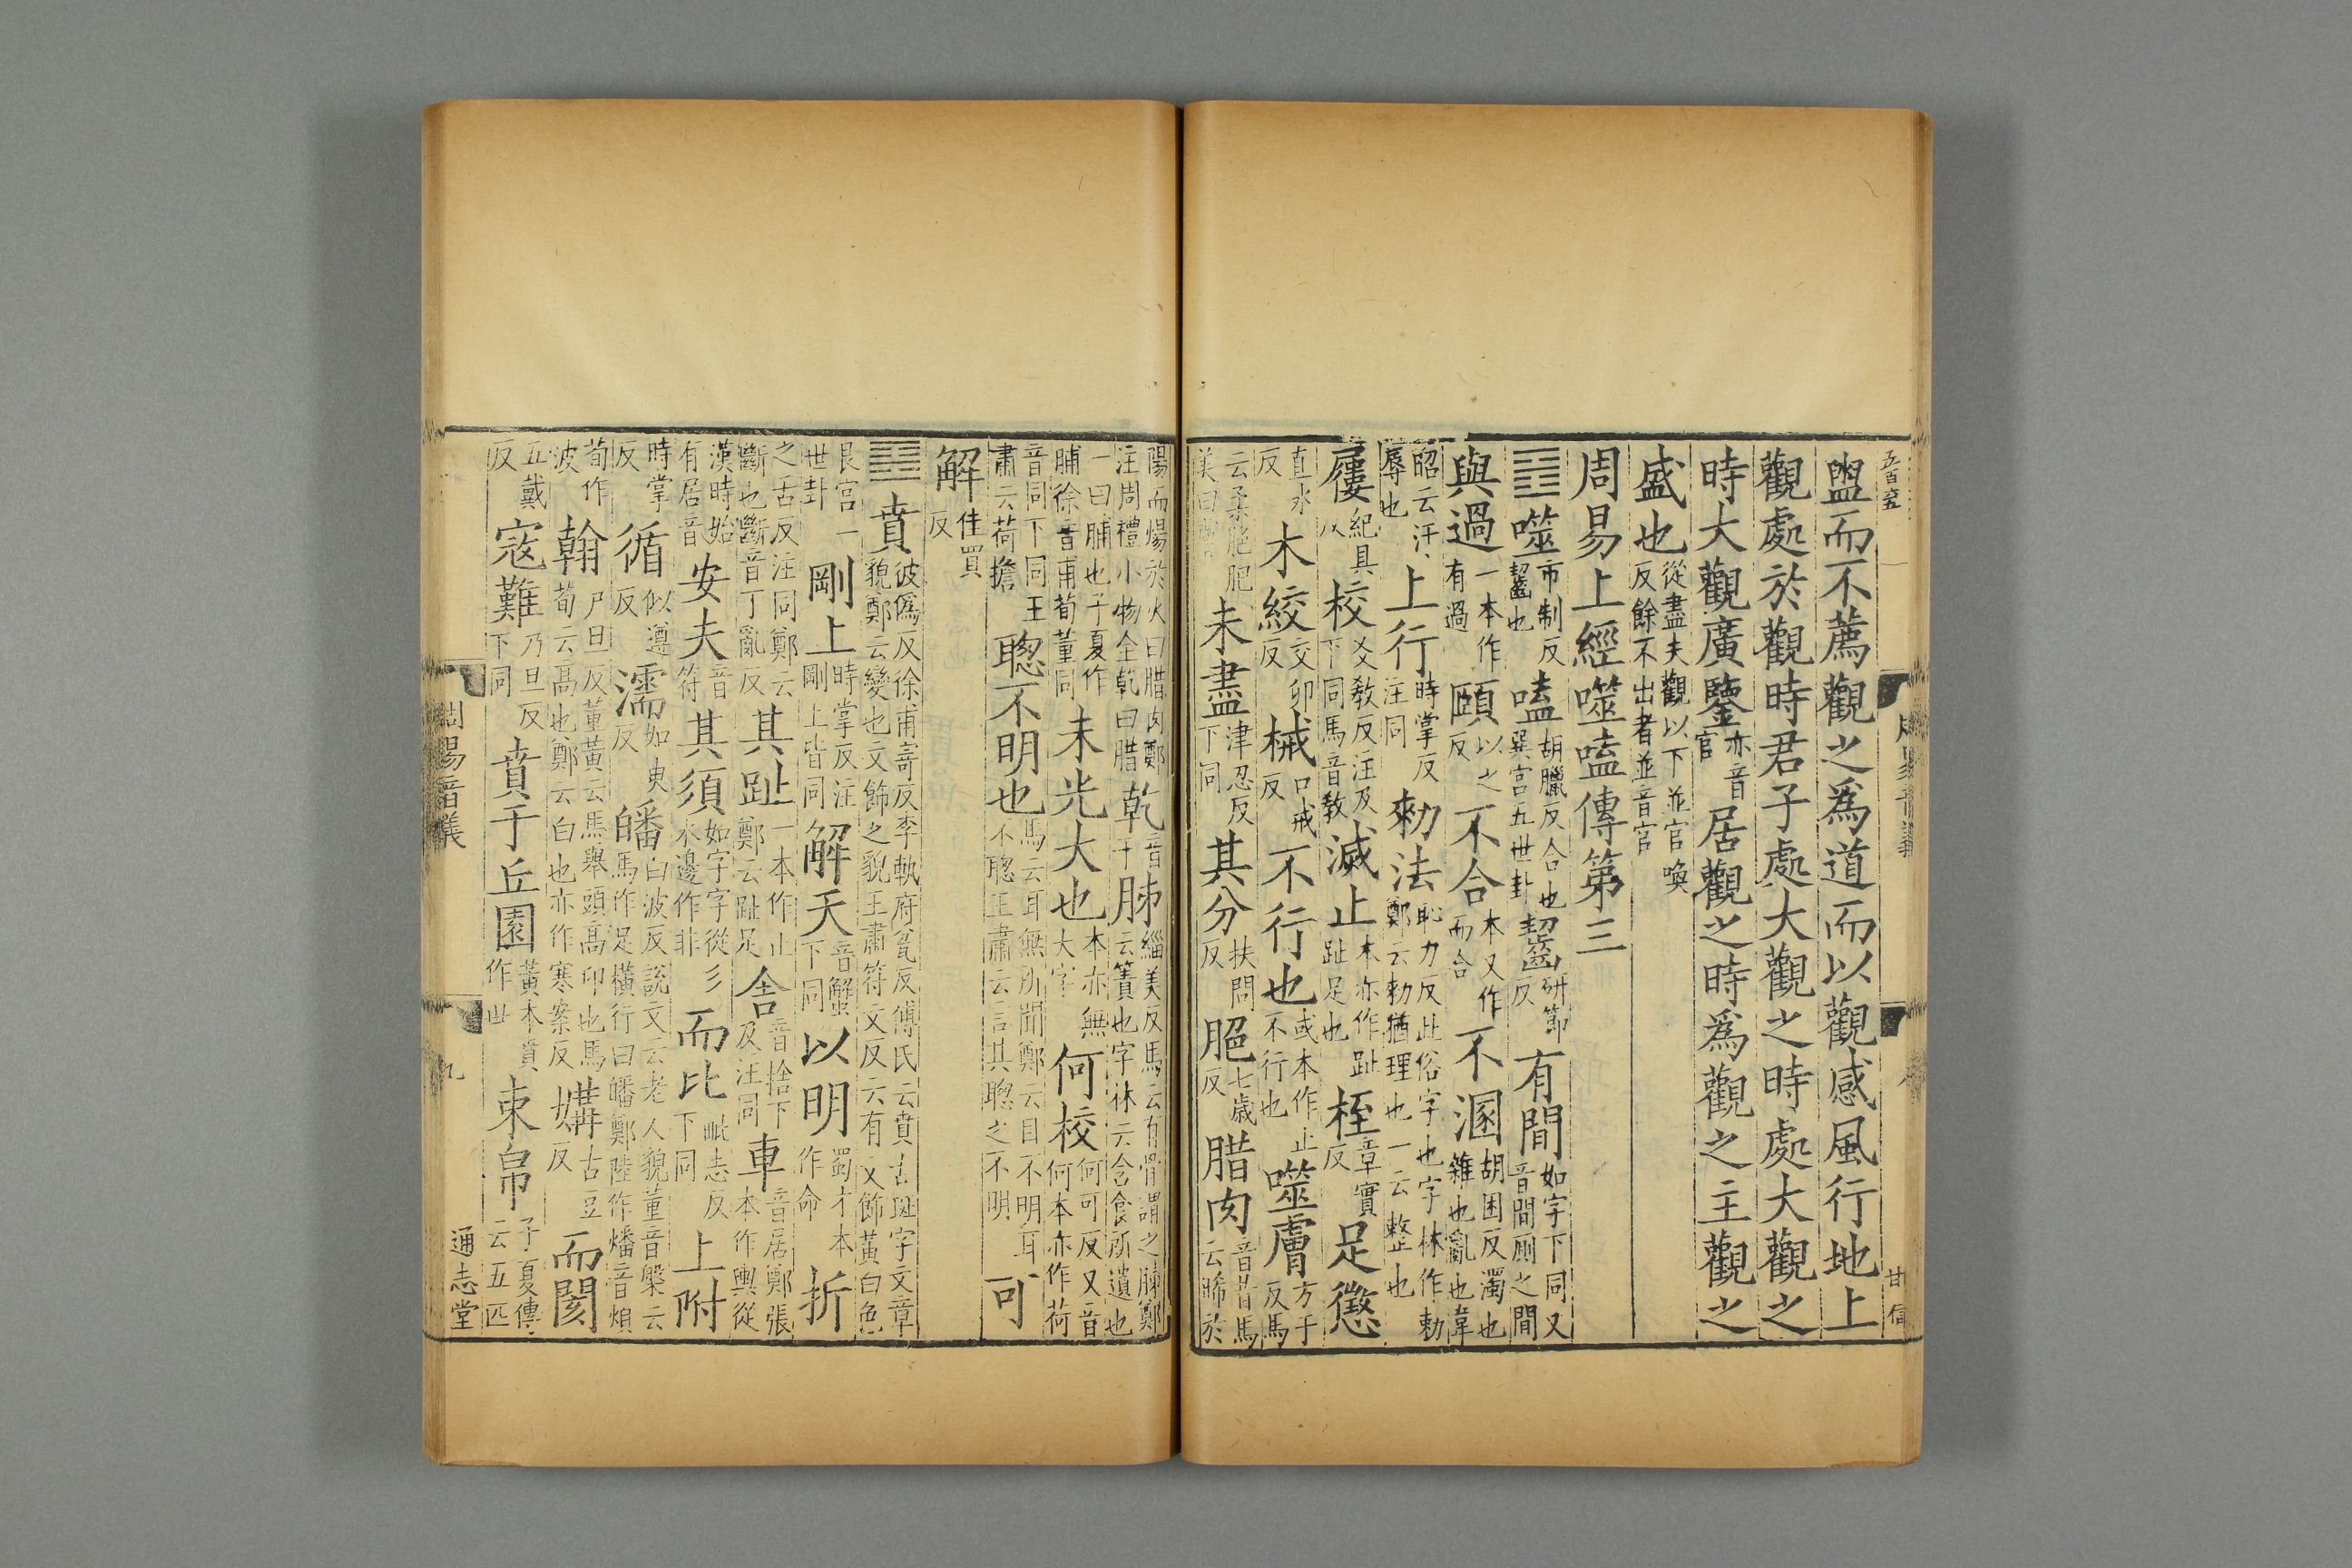 五百六五
盥而不薦觀之爲道而以觀感風行地上
觀處於觀時君子處大觀之時處大觀之
時大觀廣鑒亦音官居觀之時爲觀之主觀之
盛也從盡夫觀以下並官喚反餘不出者並音官
周易上經噬嗑傳第三
䷔噬市制反齧也嗑胡臘反合也巽宮五世卦齧研節反有間如字下同又音間厠之間
與過一本作有過頤以之反不合本又作而合不溷胡困反濁也雜也亂也韋
昭云汙辱也上行時掌反注同勑法恥力反此俗字也字林作勅鄭云勑猶理也一云整也
屨紀具反校爻敎反注及下同馬音敎滅止本亦作趾趾足也桎章實反足懲
直冰反木絞交卯反械口戒反不行也或本作止不行也噬膚方于反馬
云柔脆肥美曰膚未盡津忍反下同其分扶問反脃七歲反腊肉音昔馬云晞於
陽而煬於火曰腊肉鄭注周禮小物全乾曰腊乾音干胏緇美反馬云有骨謂之胏鄭云簀也字林云含食所遺也
一曰脯也子夏作脯徐音甫荀董同未光大也本亦無大字何校何可反又音何本亦作荷
音同下同王肅云荷擔聦不明也馬云耳無所聞鄭云目不明耳不聦王肅云言其聦之不明可
解佳買反
䷕賁彼僞反徐甫寄反李軌府瓫反傅氏云賁古斑字文章貌鄭云變也文飾之貌王肅符文反云有文飾黃白色
艮宮一世卦剛上時掌反注剛上皆同解天音蟹下同以明蜀才本作命折
之舌反注同鄭云斷也斷音丁亂反其趾一本作止鄭云趾足舍音捨下及注同車音居鄭張本作輿從
漢時始有居音安夫音符其須如字字從彡水邊作非而比毗志反下同上附
時掌反循似遵反濡如臾反皤白波反說文云老人貌董音槃云馬作足橫行曰皤鄭陸作燔音煩
荀作波翰戶旦反董黃云馬舉頭高卬也馬荀云高也鄭云白也亦作寒案反媾古豆反而閡
五戴反寇難乃旦反下同賁于丘園黃本賁作世束帛子夏傳云五匹
周易音義
九
通志堂
周易音義
甘信